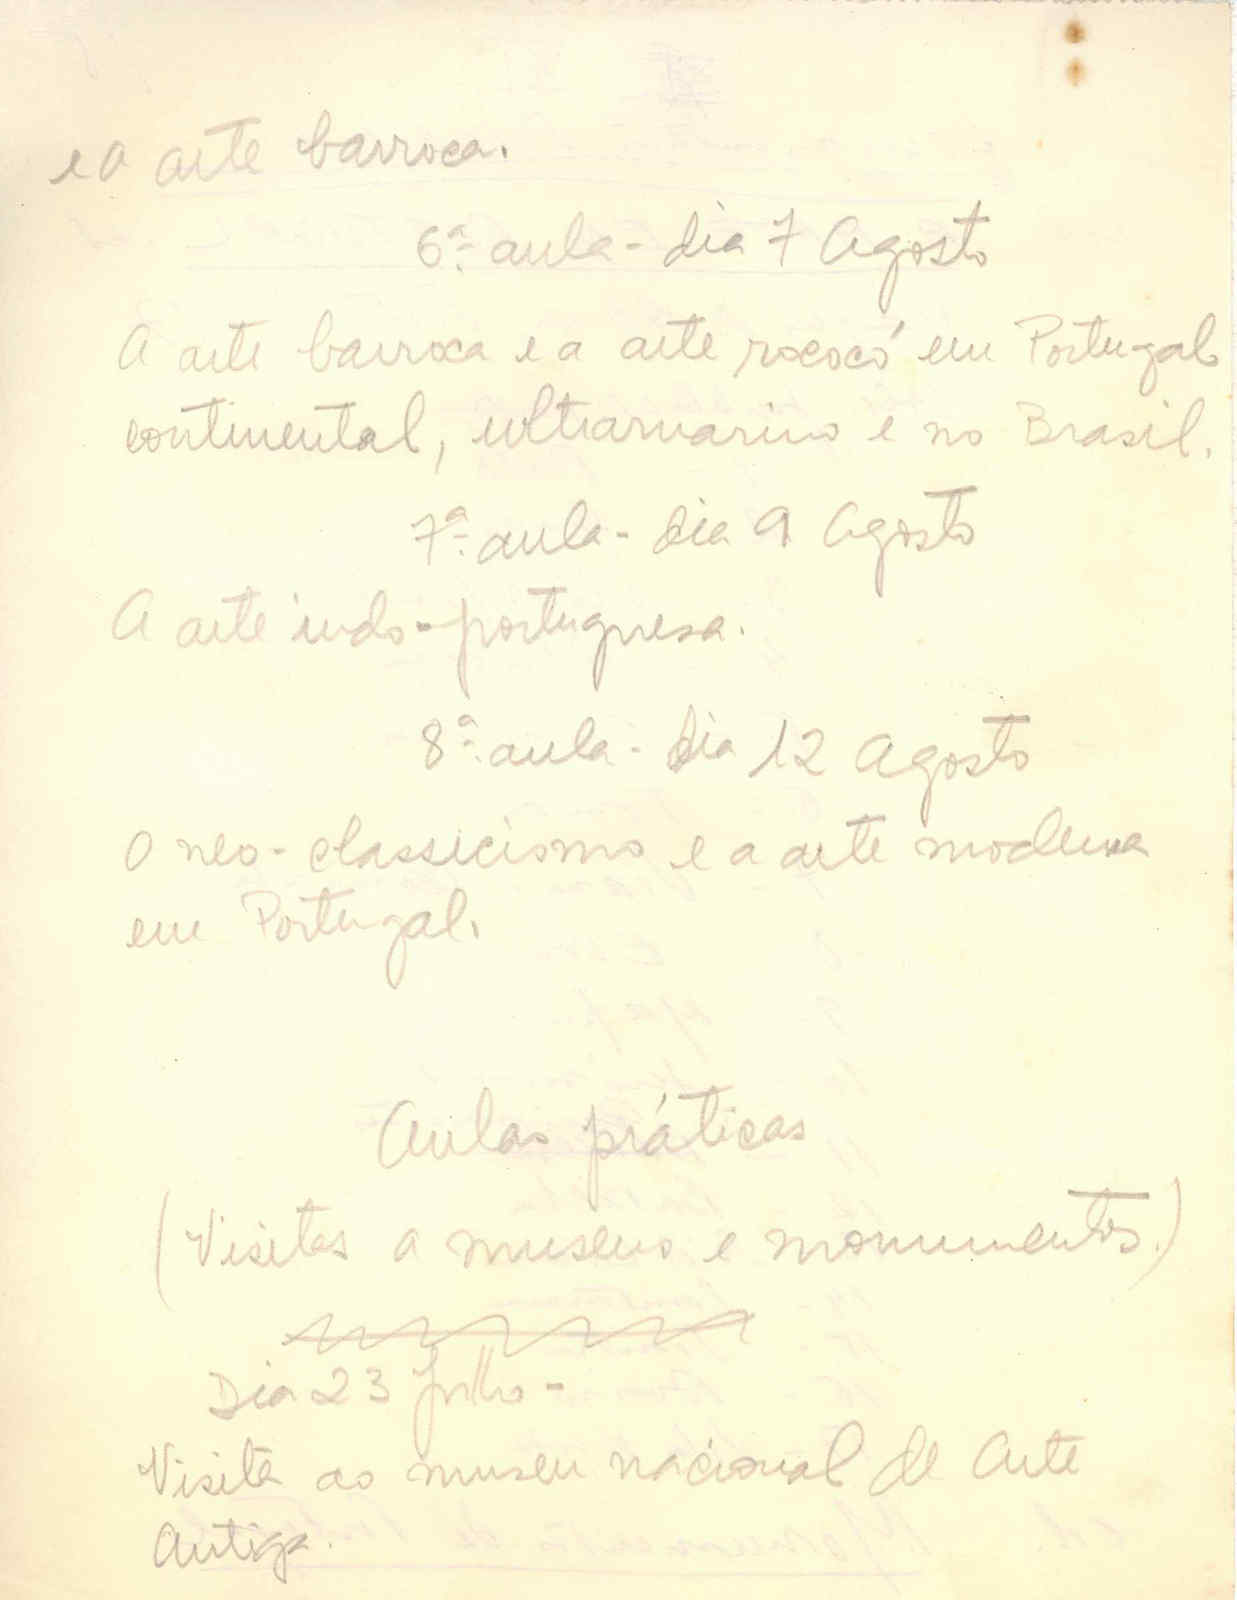 e a arte barroca.
6ª aula - dia 7 Agosto
A arte barroca e a arte rococó em Portugal
continental, ultramarino e no Brasil.
7ª aula - dia 9 Agosto
A arte indo-portuguesa.
8ª aula - dia 12 Agosto
O neo-classicismo e a arte moderna
em Portugal.
Aulas práticas
(Visitas a museus e monumentos.)
Dia 23 Julho -
Visita ao museu nacional de Arte
Antiga.